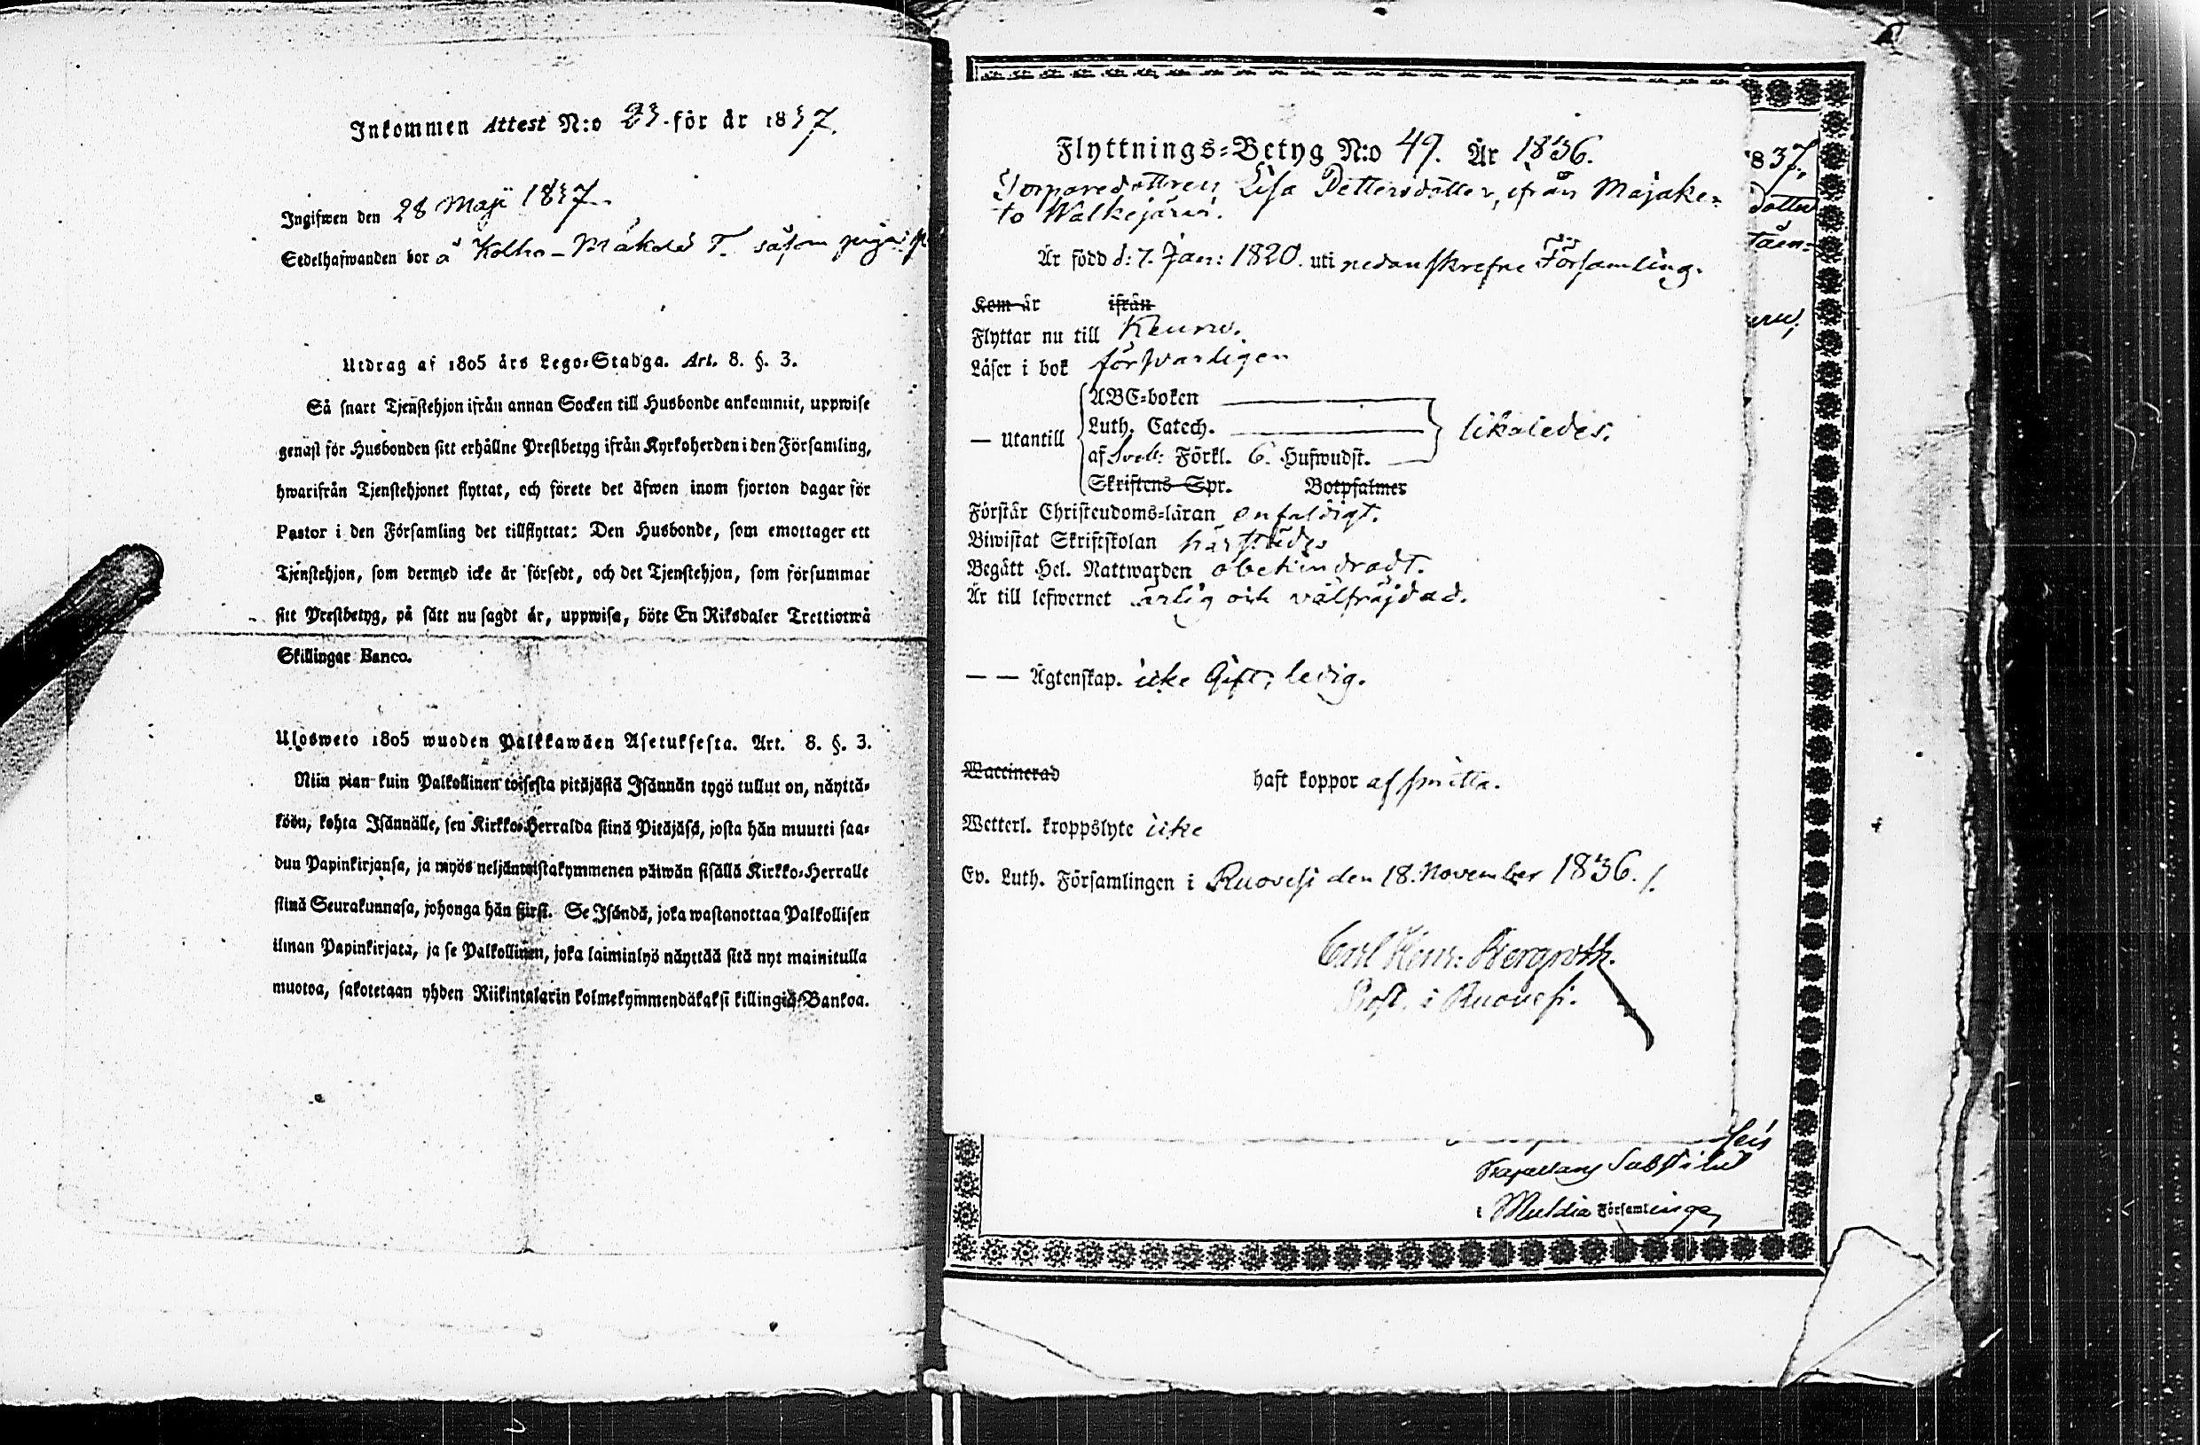 Inkommen Attest N:o 23. för år 1837.
Ingifwen den 28 Maji 1837.
Sedelhafwanden bor å Kolho-Mäkelä T. såsom piga
Utdrag af 1805 års Lego-Stadga. Art. 8. §. 3.
Så snart Tjenstehjon ifrån annan Socken till Husbonde ankommit, uppwise
genast för Husbonden sitt erhållne Prestbetyg ifrån Kyrkoherden i den Församling,
hwarifrån Tjenstehjonet flyttat, och förete det äfwen inom fjorton dagar för
Pastor i den Församling det tillflyttat: Den Husbonde, som emottager ett
Tjenstehjon, som dermed icke är försedt, och det Tjenstehjon, som försummar
sitt Prestbetyg, på sätt nu sagdt är, uppwisa, böte En Riksdaler Trettiotwå
Skillingar Banco.
Ulosweto 1805 wuoden Palkkawäen Asetuksesta. Art. 8. §. 3.
Niin pian kuin Palkollinen toisesta pitäjästä Isännän tygö tullut on, näyttä-
köön, kohta Isännälle, sen Kirkko-Herralda siinä Pitäjäsä, josta hän muutti saa-
dun Papinkirjansa, ja myös neljäntoistakymmenen päiwän sisällä Kirkko-Herralle
siinä Seurakunnasa, johonga hän siirst. Se Isändä, joka wastanottaa Palkollisen
ilman Papinkirjata, ja se Palkollinen, joka laiminlyö näyttää sitä nyt mainitulla
muotoa, sakotetaan yhden Riikintalarin kolmekymmendäkaksi killingiä Bankoa.
Flyttnings-Betyg N:o 49. År 1836.
Torparedottren Lisa Pettersdotter, ifrån Majake-
to Walkejärvi.
Är född d: 7. Jan: 1820. uti nedanskrefne Församling.
Kom år ifrån
Flyttar nu till Keuru.
Läser i bok försvarligen
— Utantill
ABC-boken
Luth. Catech.
af Sveb: Förkl. 6. Hufwudst.
likaledes.
Skriftens Spr. Botpsalmer
Förstår Christendoms-läran enfaldigt.
Biwistat Skriftskolan härstädes
Begått Hel. Nattwarden obehindradt.
Är till lefwernet ärlig och välfräjdad.
— — Ägtenskap. icke Gift, ledig.
Waccinerad haft koppor af smitta.
Wetterl. kroppslyte icke
Ev. Luth. Församlingen i Ruovesi den 18. November 1836.
Carl Henr: Bergroth.
Prost. i Ruovesi.
1837,
dotter
Substitut
i Multia Församlinge